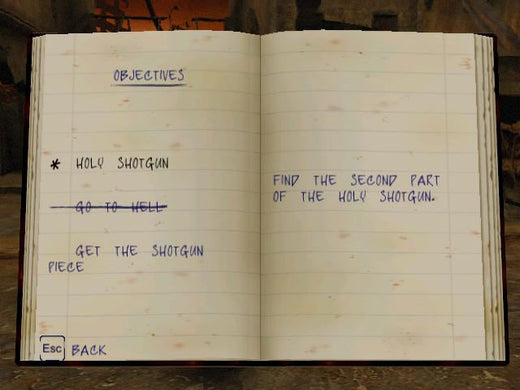 OBJECTIVES
* HOLY SHOTGUN
GO TO HELL
GET THE SHOTGUN
PIECE
Esc BACK
FIND THE SECOND PART
OF THE HOLY SHOTGUN.